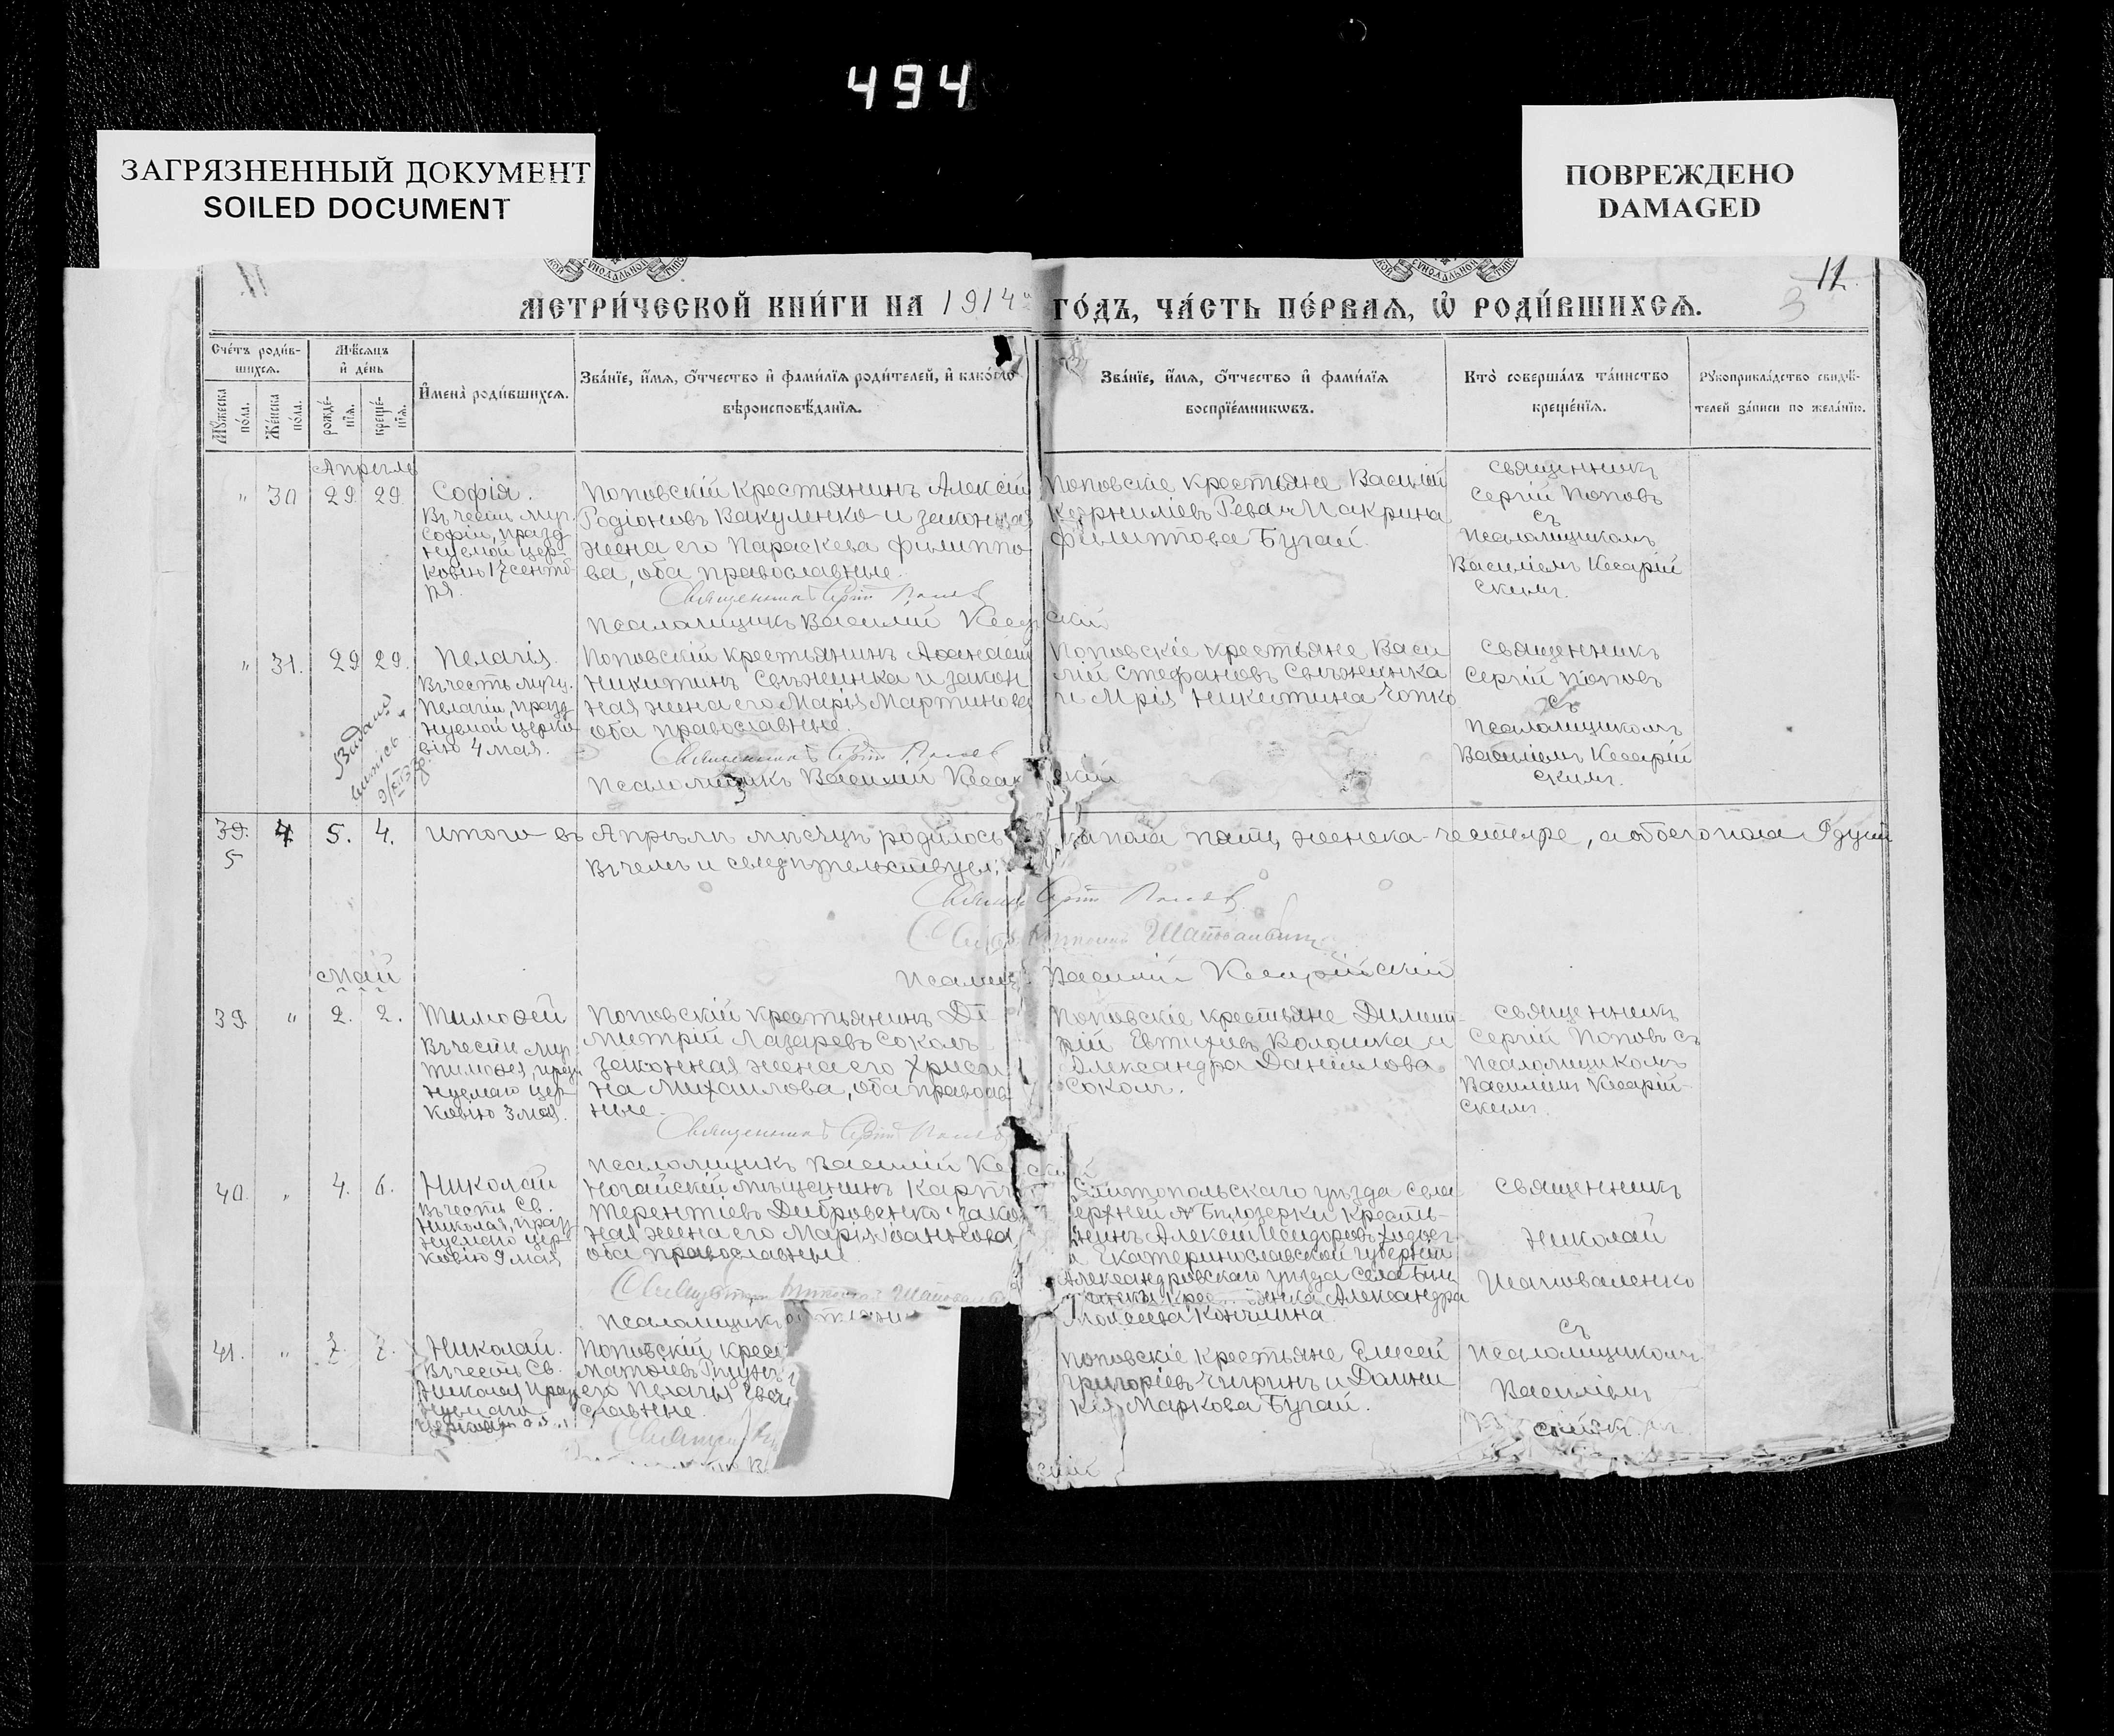 494
ЗАГРЯЗНЕННЫЙ ДОКУМЕНТ
SOILED DOCUMENT
ПОВРЕЖДЕНО
DAMAGED
11
12
3
МЕТРИ́ЧЕСКОЙ КНИ́ГИ НА 1914 ГО́ДЪ, ЧА́СТЬ ПЕ́РВАЯ, Ѡ҆ РОДИ́ВШИХСЯ.
Сче́тъ роди́в-
шихся.
Мѣ́сяцъ
и҆ де́нь
Мꙋжеска по́ла.
Же́нска по́ла.
рожде́-
нїя.
креще́-
нїя.
И҆мена̀ роди́вшихся.
Зва́нїе, и҆́мя, ѻ҆́тчество и҆ фами́лїя роди́телей, и҆ како́гѡ
вѣроисповѣ́данїя.
Зва́нїе, и҆́мя, ѻ҆́тчество и҆ фами́лїя
воспрїе́мникѡвъ.
Кто̀ соверша́лъ та́инство
креще́нїя.
Рꙋкоприкла́дство свидѣ́-
телей за́писи по жела́нїю.
Апрѣль
" 30 29 29
Софія.
Въ честь муч.
Софіи, празд
нуемой цер-
ковію 17 сентяб
ря.
Поповскій крестьянинъ Алексій
Родіоновъ Вакуленко и законная
жена его Параскева Филиппо-
ва, оба православные.
Священникъ Сергій Поповъ
Псаломщикъ Василій Кесарійскій
Поповскіе крестьяне Василій
Корниліевъ Рева и Макрина
Филиппова Бугай.
Священникъ
Сергій Поповъ
съ
Псаломщикомъ
Василіемъ Кесарій
скимъ.
" 31. 29 29.
Пелагія.
Въ честь муч.
Пелагіи, празд
нуемой церко-
вію 4 мая.
Поповскій крестьянинъ Аѳанасій
Никитинъ Свѣжинка и закон
ная жена его Марія Мартинова
оба православные.
Священникъ Сергій Поповъ
Псаломщикъ Василій
Поповскіе крестьяне Васи
лій Стефановъ Свѣжинка
и Мрія Никитина Чопко
Священникъ
Сергій Поповъ
съ
Псаломщикомъ
Василіемъ Кесарій
скимъ.
39. 4 5. 4.
5
Итого въ Апрѣлѣ мѣсяцѣ родилось ка пола пять, женска четыре, а обоего пола 9 душъ
Въ чемъ и свидѣтельствуемъ:
Священ. Сергій Поповъ
Псаломщ. Василій Кесарійскій
Май
39. " 2. 2.
Тимоѳей
Въ честь муч.
Тимоѳея, празд
нуемаго цер-
ковію 3 мая.
Поповскій крестьянинъ Ди
митрій Лазаревъ Соколъ
законная жена его Христи
на Михаилова, оба православ
ные.
Священникъ Сергій Поповъ
Псаломщикъ Василій
Поповскіе крестьяне Димит-
рій Евтихіевъ Волошка и
Александра Даніилова
Соколъ.
Священникъ
Сергій Поповъ съ
Псаломщикомъ
Василіемъ Кесарій-
скимъ.
40. " 4. 6.
Николай
Въ честь Св.
Николая, празд
нуемаго цер-
ковію 9 мая
Ногайскій мѣщанинъ Карпъ
Терентіевъ Дибровенко закон
ная жена его Марія Іоаннова
оба православные.
Священникъ Николай
Псаломщикъ
литопольскаго уѣзда села
ерхней Бѣлозерки кресть-
нинъ Алексій Исидоровъ
и Екатеринославской губерніи
Александровскаго уѣзда села
Александра
Моисеева Кончина
Священникъ
Николай
Шаповаленко
съ
Псаломщикомъ
Василіемъ
41. " 7. 7.
Николай.
Въ честь Св.
Николая праз
нуемаго
Поповскій крест
Матѳіевъ
его Пелагія
славные.
Поповскіе крестьяне Елисей
Григоріевъ Чигринъ и Домни
кія Маркова Бугай.
скій